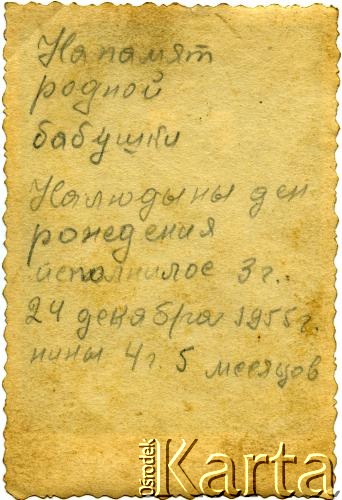 На памят
родной
бабушки
Налюдыны ден
рождения
исполнилос 3 г.
24 декабря 1955 г.
нины 4 г. 5 месяцов
Ośrodek
Karta